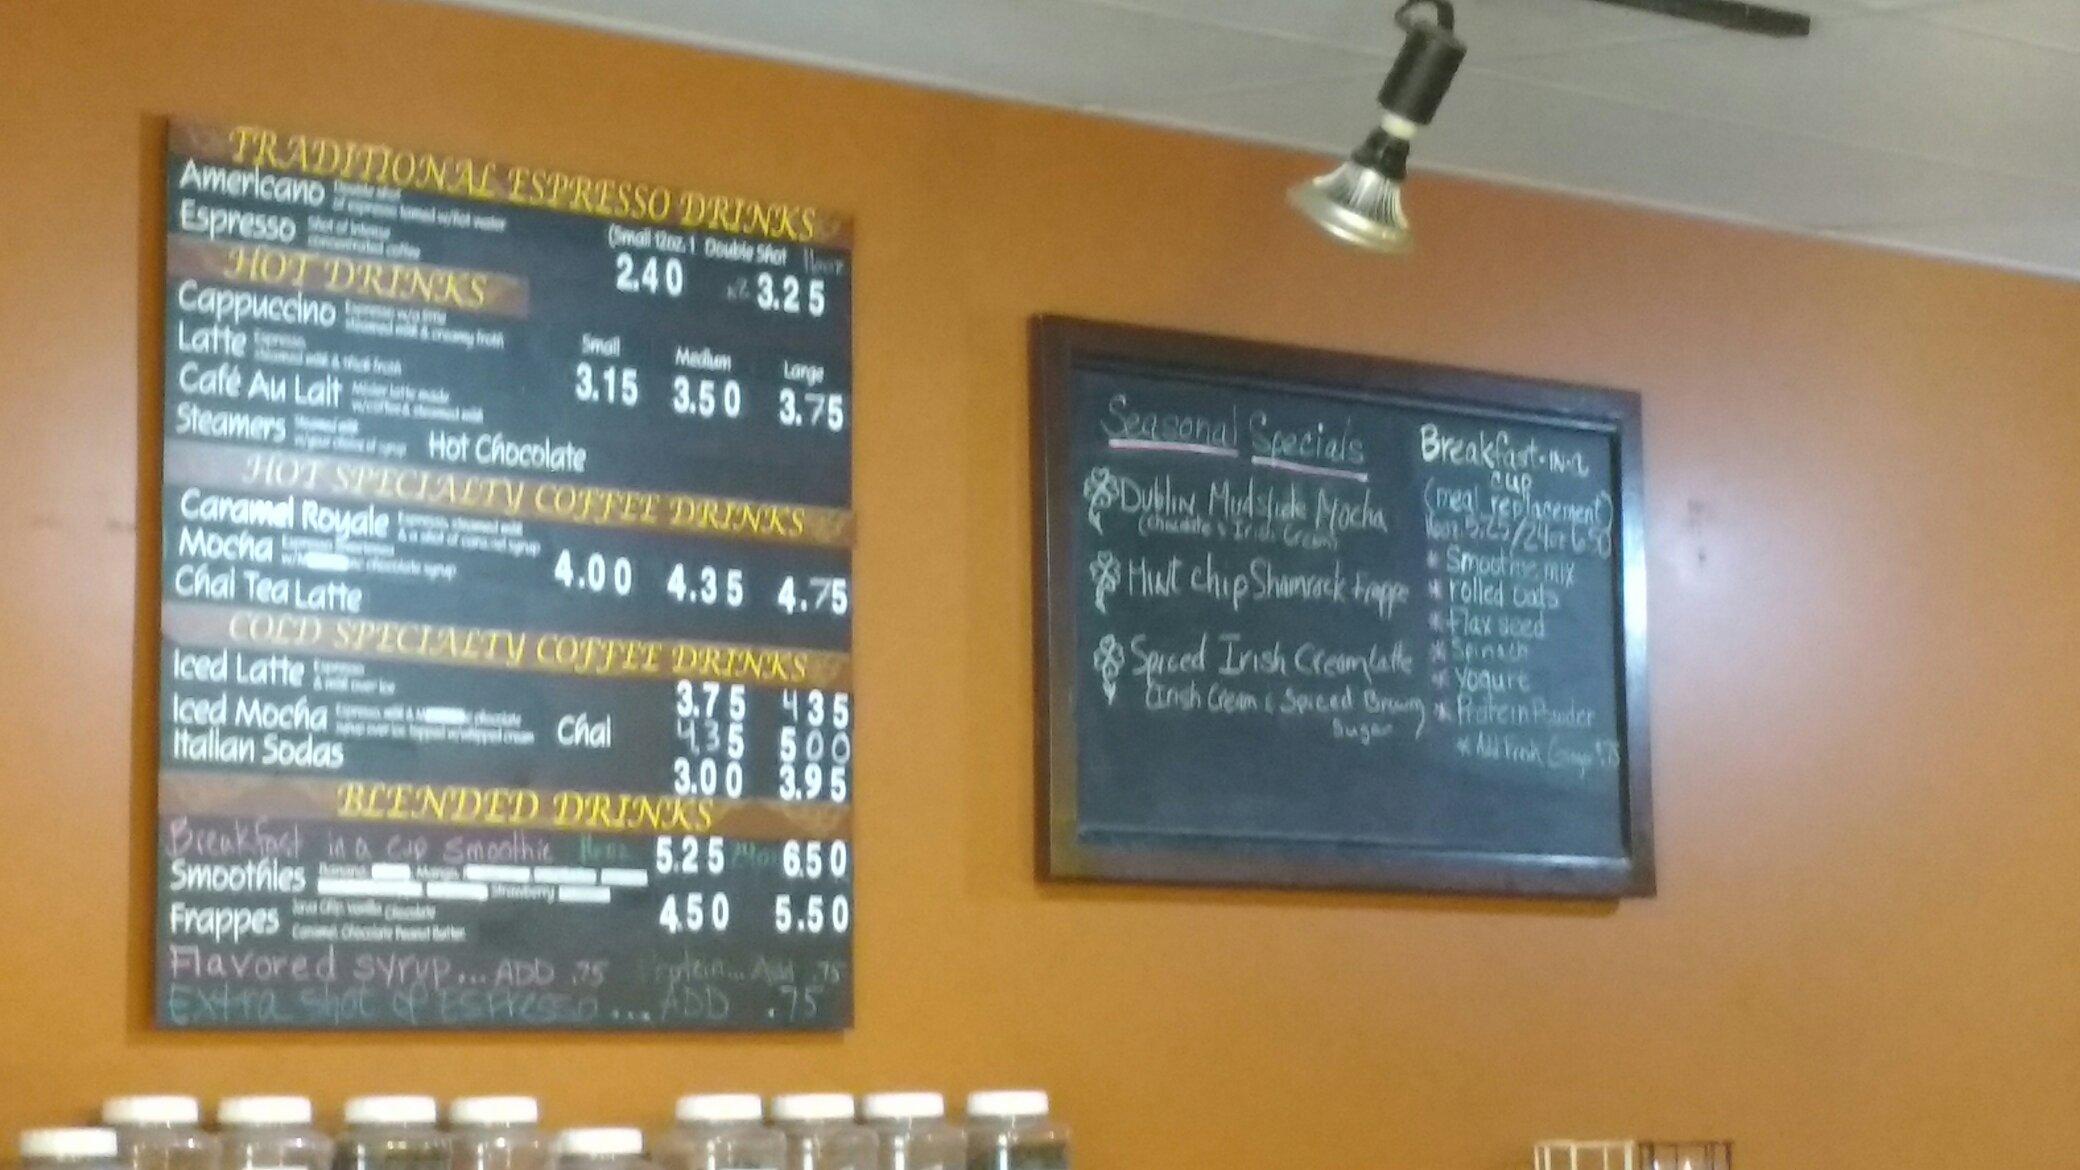 TRADITIONAL ESPRESSO DRINKS
Americano Double shot
of espresso
Espresso Shot of intense
concentrated coffee
(Small 12oz. 1 Double Shot
2.40 x2 3.25
HOT DRINKS
Cappuccino Espresso
steamed milk & creamy froth
Latte Espresso,
steamed milk & thick froth
Café Au Lait latte made
w/coffee & steamed milk
Steamers Steamed milk
w/your choice of syrup Hot Chocolate
Small Medium Large
3.15 3.50 3.75
HOT SPECIALTY COFFEE DRINKS
Caramel Royale Espresso, steamed milk
& a shot of caramel syrup
Mocha Espresso
chocolate syrup
Chai Tea Latte
4.00 4.35 4.75
COLD SPECIALTY COFFEE DRINKS
Iced Latte Espresso
& milk over ice 3.75 4.35
Iced Mocha Espresso, milk & chocolate
syrup over ice topped w/whipped cream Chai 4.35 5.00
Italian Sodas 3.00 3.95
BLENDED DRINKS
Breakfast in a cup smoothie 16oz 5.25 24oz 6.50
Smoothies Banana, Mango,
Strawberry
4.50 5.50
Frappes Java Chip, Vanilla, Chocolate
Caramel, Chocolate Peanut Butter
Flavored syrup... ADD .75 Protein... Add .75
Extra shot of Espresso... ADD .75
Seasonal Specials
Dublin Mudslide Mocha
(chocolate & Irish Cream)
Mint Chip Shamrock Frappe
Spiced Irish Cream Latte
(Irish Cream & Spiced Brown
Sugar)
Breakfast-IN-a
cup
(meal replacement)
16oz 5.25/24oz 6.50
* Smoothie mix
* rolled oats
* Flax seed
* Spinach
* Yogurt
* Protein Powder
* Add Fresh .75